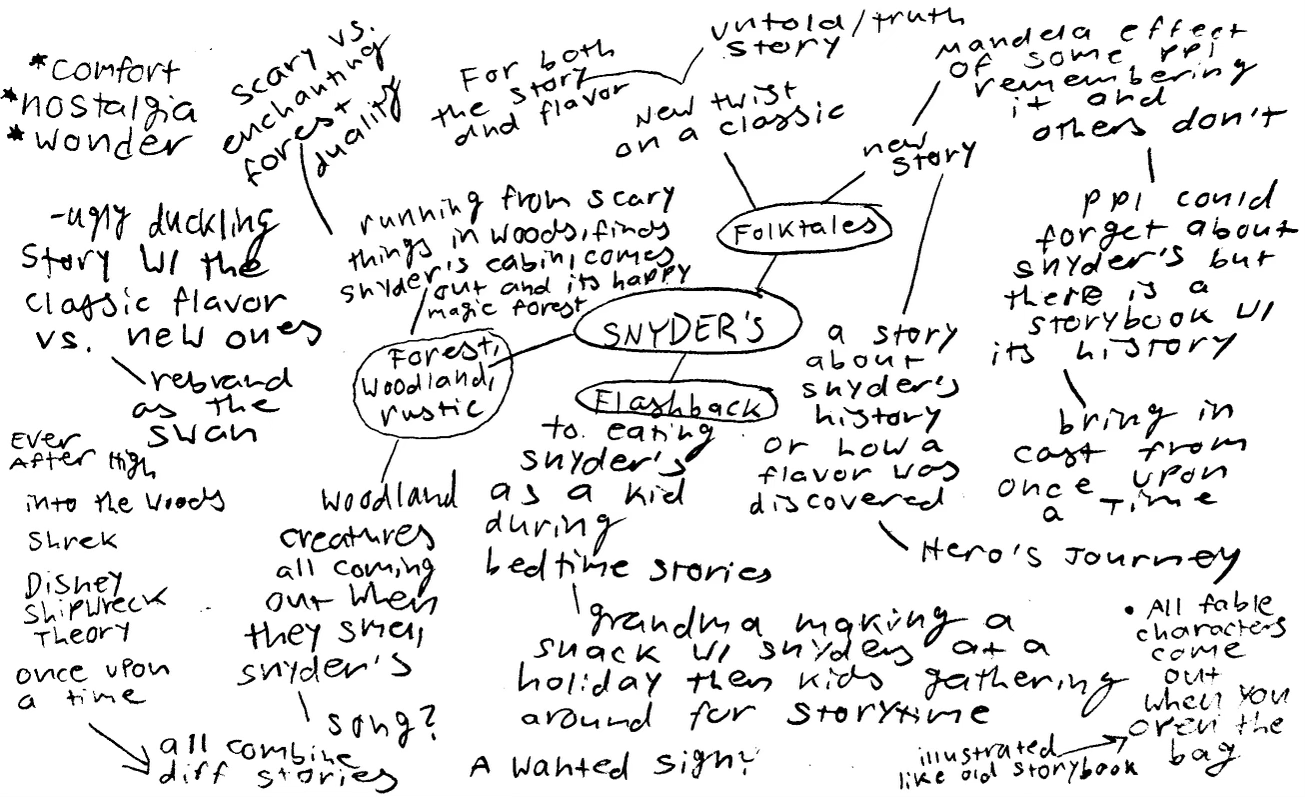 *comfort
*nostalgia
*wonder
scary vs.
enchanting
forest
duality
For both
the story
and flavor
untold/truth
story
New twist
on a classic
Mandela effect
of some ppl
remembering
it and
others don't
new
story
-ugly duckling
story w/ the
classic flavor
vs. new ones
rebrand
as the
swan
running from scary
things in woods, finds
snyder's cabin, comes
out and its happy
magic forest
Folktales
SNYDER'S
Forest,
woodland,
rustic
Flashback
to eating
snyder's
as a kid
during
bedtime stories
a story
about
snyder's
history
or how a
flavor was
discovered
Hero's Journey
ppl could
forget about
snyder's but
there is a
storybook w/
its history
bring in
cast from
once upon
a Time
Ever
After High
into the woods
Shrek
Disney
Shipwreck
Theory
once upon
a time
all combine
diff stories
woodland
creatures
all coming
out when
they smell
snyder's
song?
grandma making a
snack w/ snyders at a
holiday then kids gathering
around for storytime
A wanted sign?
• All fable
characters
come
out
when you
open the
bag
illustrated
like old storybook